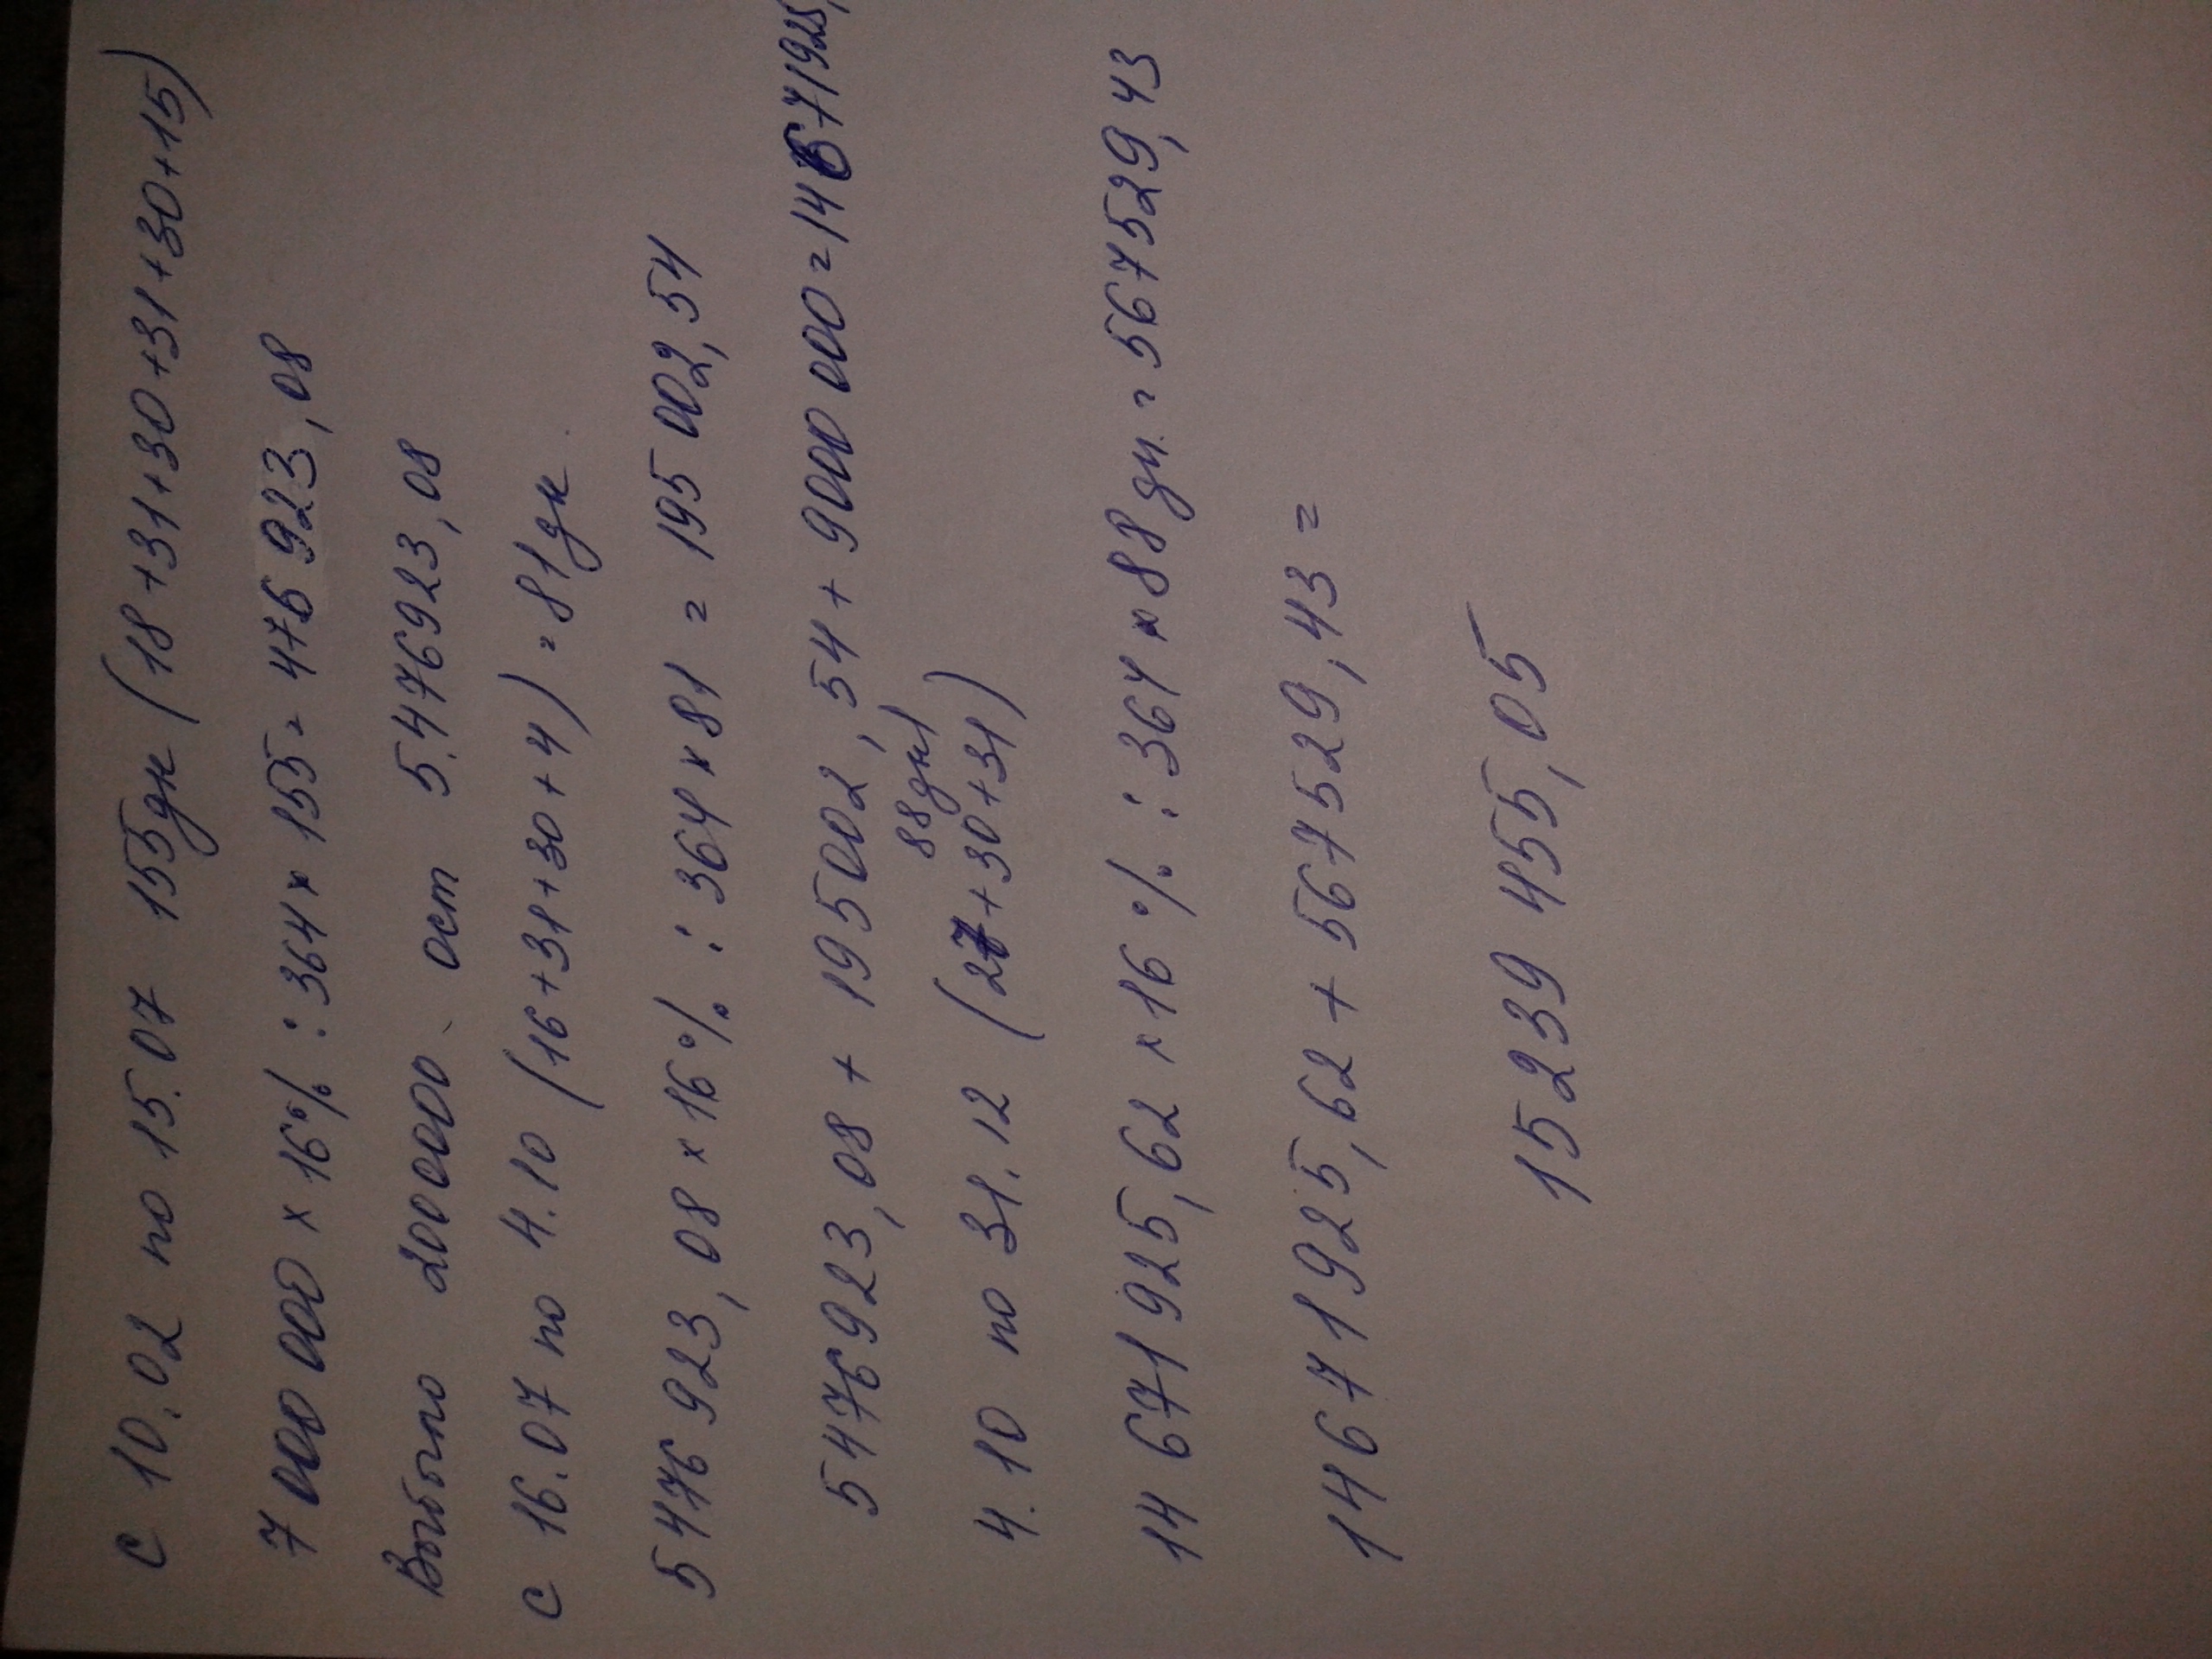 с 10.02 по 15.07 155дн (18+31+30+31+30+15)
7 000 000 × 16% : 364 × 155 = 476 923,08
Выбыло 2000000 ост 5.476923,08
с 16.07 по 4.10 (16+31+30+4) = 81дн
5 476 923,08 × 16% : 364 × 81 = 195 002,54
5476923,08 + 195002,54 + 9000 000 = 14671925,
88дней
4.10 по 31.12 (27+30+31)
14 671 925,62 × 16% : 364 × 88 дн. = 567529,43
14671925,62 + 567529,43 =
15 239 455,05